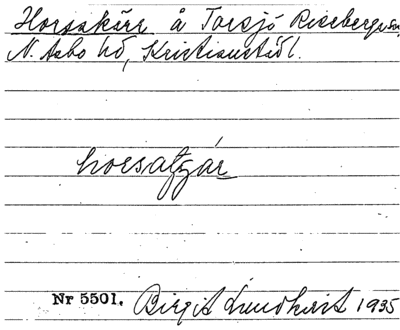 Horsakärr å Torsjö Riseberga sn,
N. Åsbo hd, Kristianstad l.
horsatɡár
Nr 5501. Birgit Lundkvist 1935